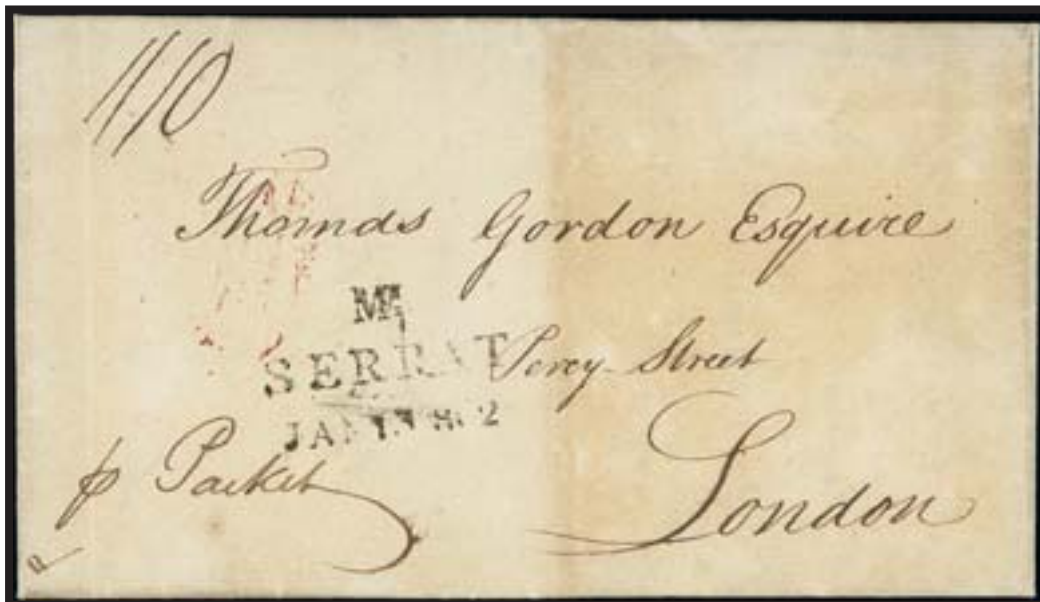 1/10
Thomas Gordon Esquire
Mᵀ
SERRAT
Percy Street
p Packet
London